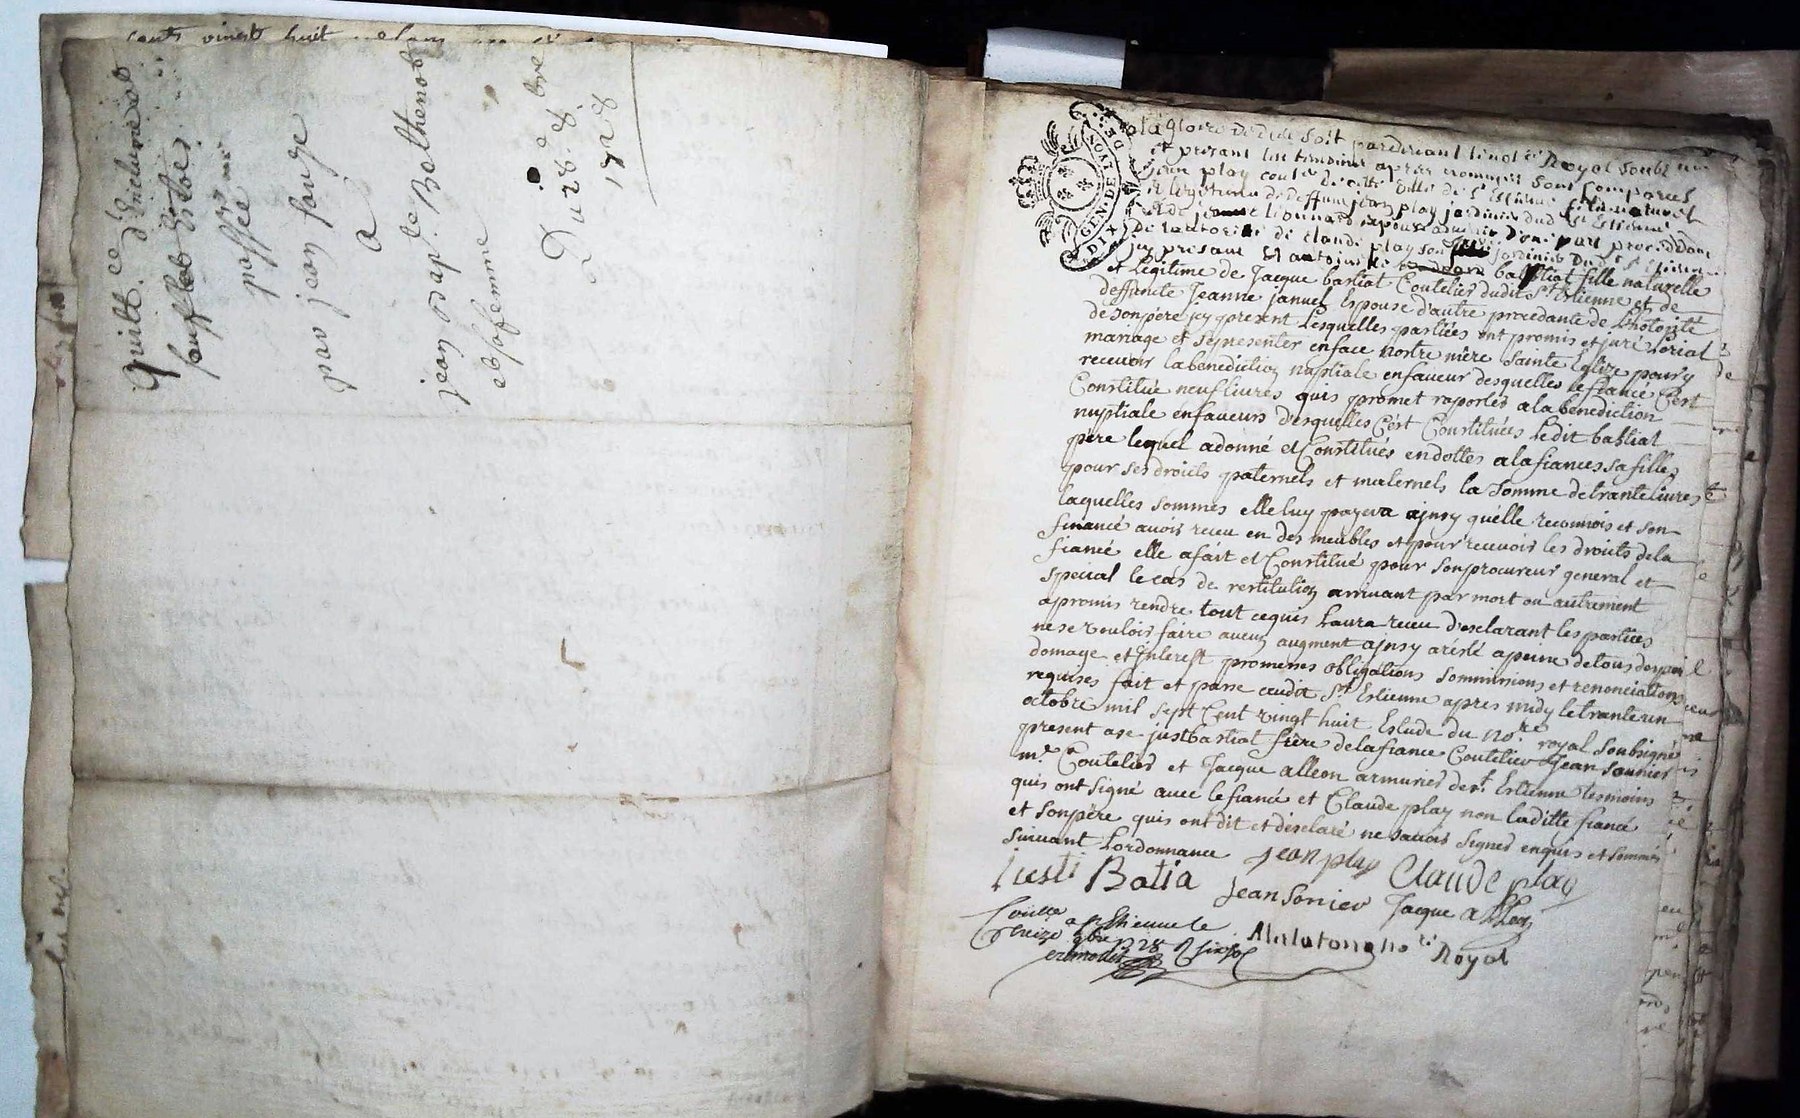 cents vingt huit
quitt.ce
passée
par jean fauge
a
jean bap.te Bathenod
et sa femme
Du 28.e 8.bre
1728
GEN. DE LYON
DIX DE
a la gloire de dieu soit pardevant le not.re Royal soubz
et presant les temoins apres nommés sont comparus
jean play de cette ville de st estienne fils naturel
et legitime de deffunt jean play jardinier dud st estienne
et de Lionnard d'une part procedant
de lautorité de claude play son jardinier Dud st Estienne
icy presant Et antoinette bastiat fille naturelle
et Legitime de Jacque bastiat Coutelier dudit St Estienne et de
deffuncte Jeanne januel Espouse d'autre procedante de Lhotorité
de son pere icy present Lesquelles parties ont promis et juré Lorial
mariage et se presenter en face nostre mère Sainte Eglize pour y
recevoir la benediction nuptiale en faveur desquelles le fiancé C'est
Constitué neuf livres quis promet raporter a la benediction
nuptiale en faveurs d'esquelles C'ést Constituées Ledit bastiat
père lequel a donné et Constitués en dottes a la fiances sa filles
pour ses droits paternels et maternels la Somme de trante livres
laquelles sommes elle luy payera ajnsy quélle reconnois et son
fiancé avoir receu en des meubles et pour recevoir les droits de la
fiancé elle a fait et Constitué pour son procureur general et
special le cas de restitution arrivant par mort ou autrement
a promis rendre tout ce quis Laura receu d'esclarant les parties
ne se vouloir faire aucun augment ajnsy arésté a peine de tous despan
domage et Jnterest promesses obligations sommissions et renonciations
requises fait et passe audit St Estienne apres midy le trante un
octobre mil sept Cent vingt huit Estude du no.re royal soubsigné
present a ce just bastiat frère de la fiance Coutelier Jean Sonnier
m.e Coutelier et Jacque alleon armurier de s.t Estienne tesmoins
quis ont signé avec le fiancé et Claude play non laditte fiancé
et son père quis ont dit et déselaré ne savoir signer enquis et sommés
suivant Lordonnance jean play Claude play
iusti Batia Jean Sonier Jacque alleon
a st Etienne le
treize 9bre 1728
Royal